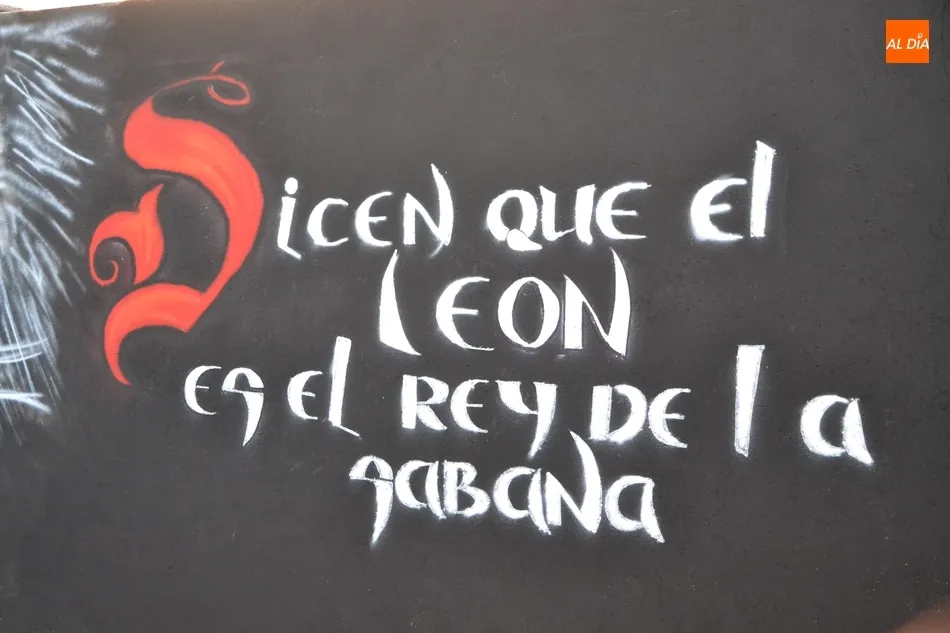 DICEN QUE El
LEON
ES EL REY DE lA
SABANA
AL DÍA